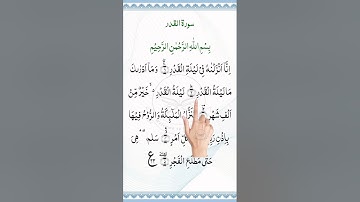 سورة القدر
بِسْمِ اللّٰهِ الرَّحْمٰنِ الرَّحِيْمِ
اِنَّاۤ اَنْزَلْنٰهُ فِيْ لَيْلَةِ الْقَدْرِ ۝ وَمَاۤ اَدْرٰىكَ
مَا لَيْلَةُ الْقَدْرِ ۝ لَيْلَةُ الْقَدْرِ خَيْرٌ مِّنْ
اَلْفِ شَهْرٍ الْمَلٰٓئِكَةُ وَالرُّوْحُ فِيْهَا
بِاِذْنِ كُلِّ اَمْرٍ ۝ سَلٰمٌ هِيَ
حَتّٰى مَطْلَعِ الْفَجْرِ ۝